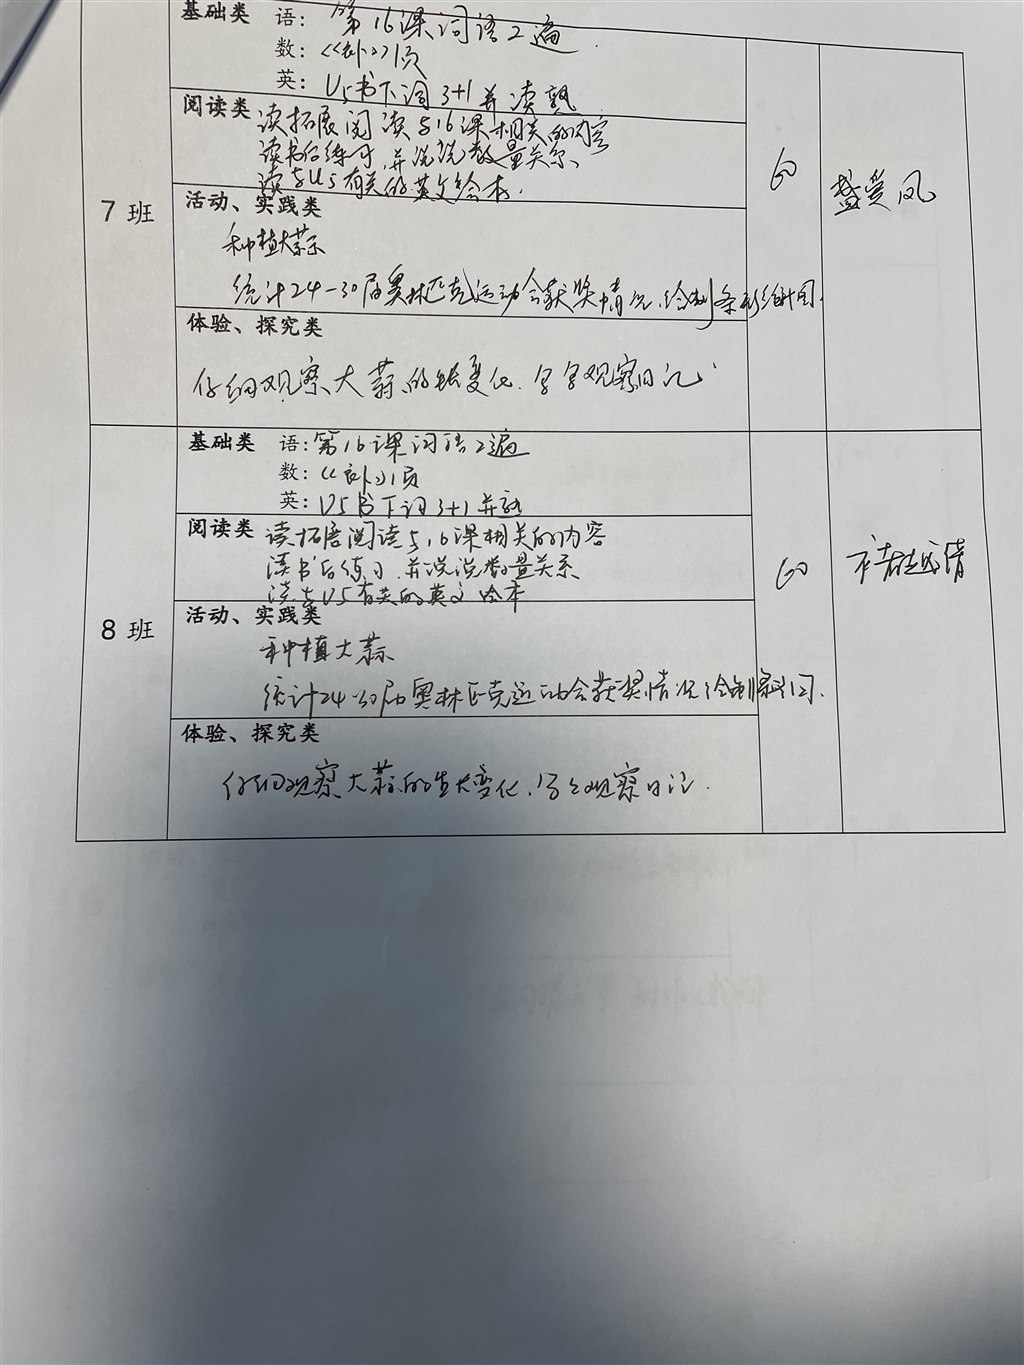 基础类 语: 第16课词语2遍.
数: 《补》1页
英: U5书下词3+1并读熟
阅读类 读拓展阅读与16课相关的内容
读书后练习,并说说数量关系
读与U5有关的英文绘本.
7班
60
活动、实践类
种植大蒜
统计24-30届奥林匹克运动会获奖情况,绘制条形统计图.
体验、探究类
仔细观察大蒜的生长变化,写写观察日记
基础类 语: 第16课词语2遍
数: 《补》1页
英: U5书下词3+1并熟
阅读类 读拓展阅读与16课相关的内容
读书后练习,并说说数量关系
读与U5有关的英文绘本
8班
60
活动、实践类
种植大蒜
统计24-30届奥林匹克运动会获奖情况绘制
体验、探究类
仔细观察大蒜的生长变化,写写观察日记.